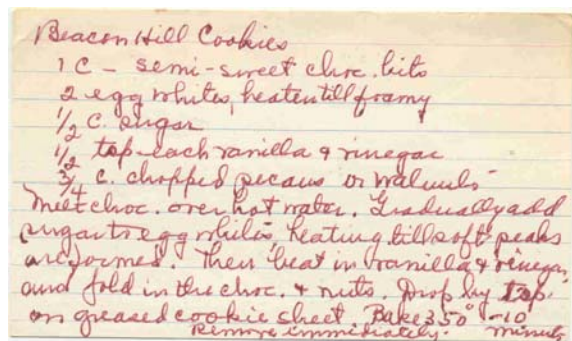 Beacon Hill Cookies
1 C - semi-sweet choc. bits
2 egg whites, beaten till foamy
1/2 c. sugar
1/2 tsp each vanilla & vinegar
3/4 c. chopped pecans or walnuts
Melt choc. over hot water. Gradually add
sugar to egg whites, beating till soft peaks
are formed. Then beat in vanilla & vinegar,
and fold in the choc. & nuts. Drop by tsp.
on greased cookie sheet Bake 350° - 10
Remove immediately. minutes